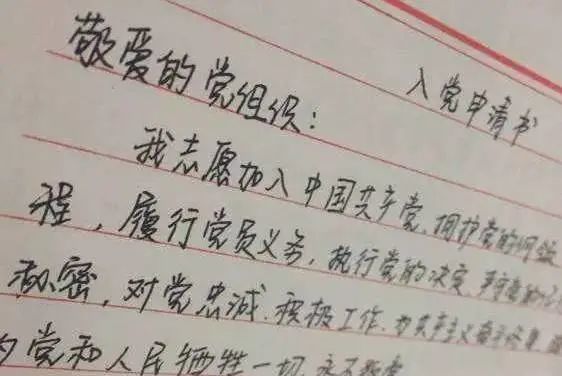 入党申请书
敬爱的党组织：
我志愿加入中国共产党，拥护党的纲领
程，履行党员义务，执行党的决定，严守党的
秘密，对党忠诚，积极工作，为共产主义奋斗终身，
为党和人民牺牲一切，永不叛党